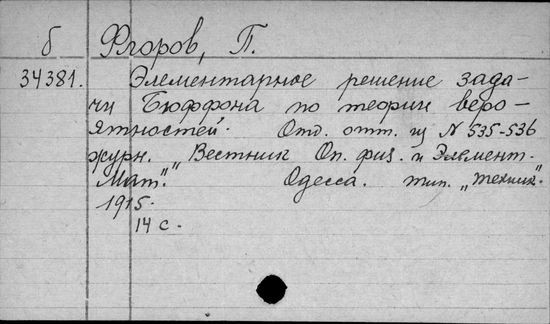 б Флоров, П.
34381. Элементарное решение зада-
чи Бюффона по теории веро-
ятностей. Отд. отт. из N 535-536
журн. "Вестник Оп. физ. и Элемент.
Мат." Одесса. тип. "Техник".
1915.
14 с.